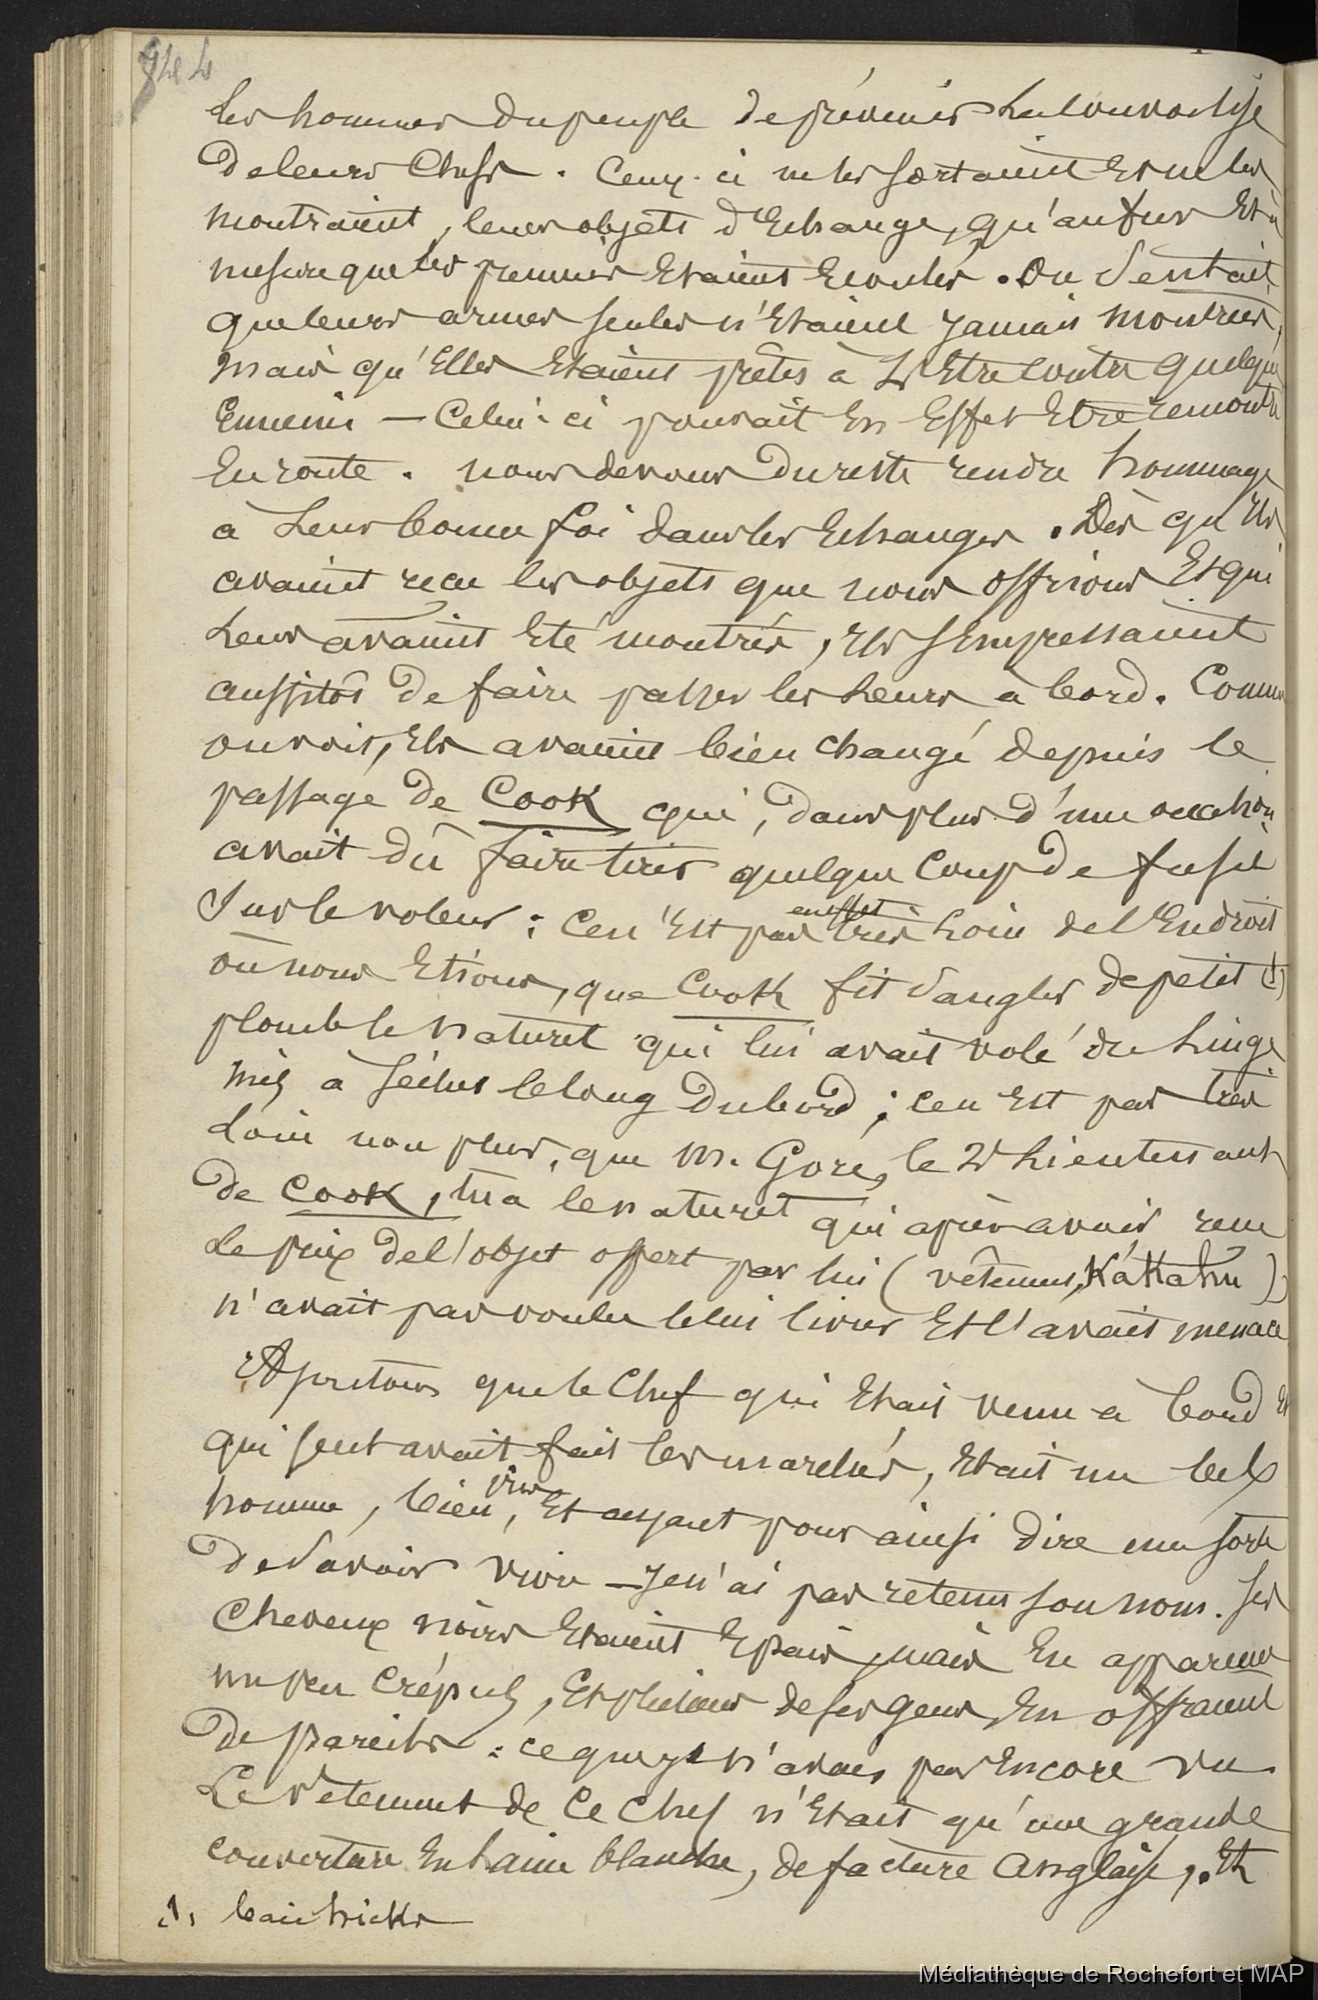 344
les hommes du peuple de prévenir la convoitise
de leurs Chefs. Ceux-ci ne les sortaient et ne les
montraient, leurs objets d'Echange, qu'au fur et à
mesure que les premiers Etaient Ecoulés. On sentait
que leurs armes seules n'Etaient jamais montrées,
mais qu'Elles Etaient prêtes à l'Etre contre quelque
Ennemi — Celui-ci pouvait En Effet Etre rencontré
En route. nous devons du reste rendre hommage
à Leur bonne foi dans les Echanges. Dès qu'Ils
avaient reçu les objets que nous offrions Et qui
Leur avaient Eté montrés, Ils s'Empressaient
aussitôt de faire passer les Leurs à bord. Comme
on voit, Ils avaient bien changé depuis le
passage de Cook qui, dans plus d'une occasion
avait dû faire tirer quelque Coup de fusil
sur le voleur: Ce n'Est pas en effet très Loin de l'Endroit
où nous Etions, que Cook fit sangler de petit (1)
plomb le naturel qui lui avait volé du Linge
mis à sécher le long du bord; ce n'Est pas très
Loin non plus, que M. Gore, le 2d Lieutenant
de Cook, tua le naturel qui après avoir reçu
Le prix de l'objet offert par lui (vêtement, Kakahu)
n'avait pas voulu le lui livrer Et l'avait menacé
Ajoutons que le Chef qui Etait venu à bord Et
qui seul avait fait les marchés, Etait un bel
homme, bien pris, Et ayant pour ainsi dire une sorte
de savoir vivre — Je n'ai pas retenu son nom. Ses
Cheveux noirs Etaient Epais, mais En apparence
un peu Crépus, Et plusieurs de ses gens En offraient
de pareils: ce que je n'avais pas Encore vu.
Le Vêtement de Ce Chef n'Etait qu'une grande
couverture En Laine blanche, de facture anglaise, Et
1, baie hicks
Médiathèque de Rochefort et MAP